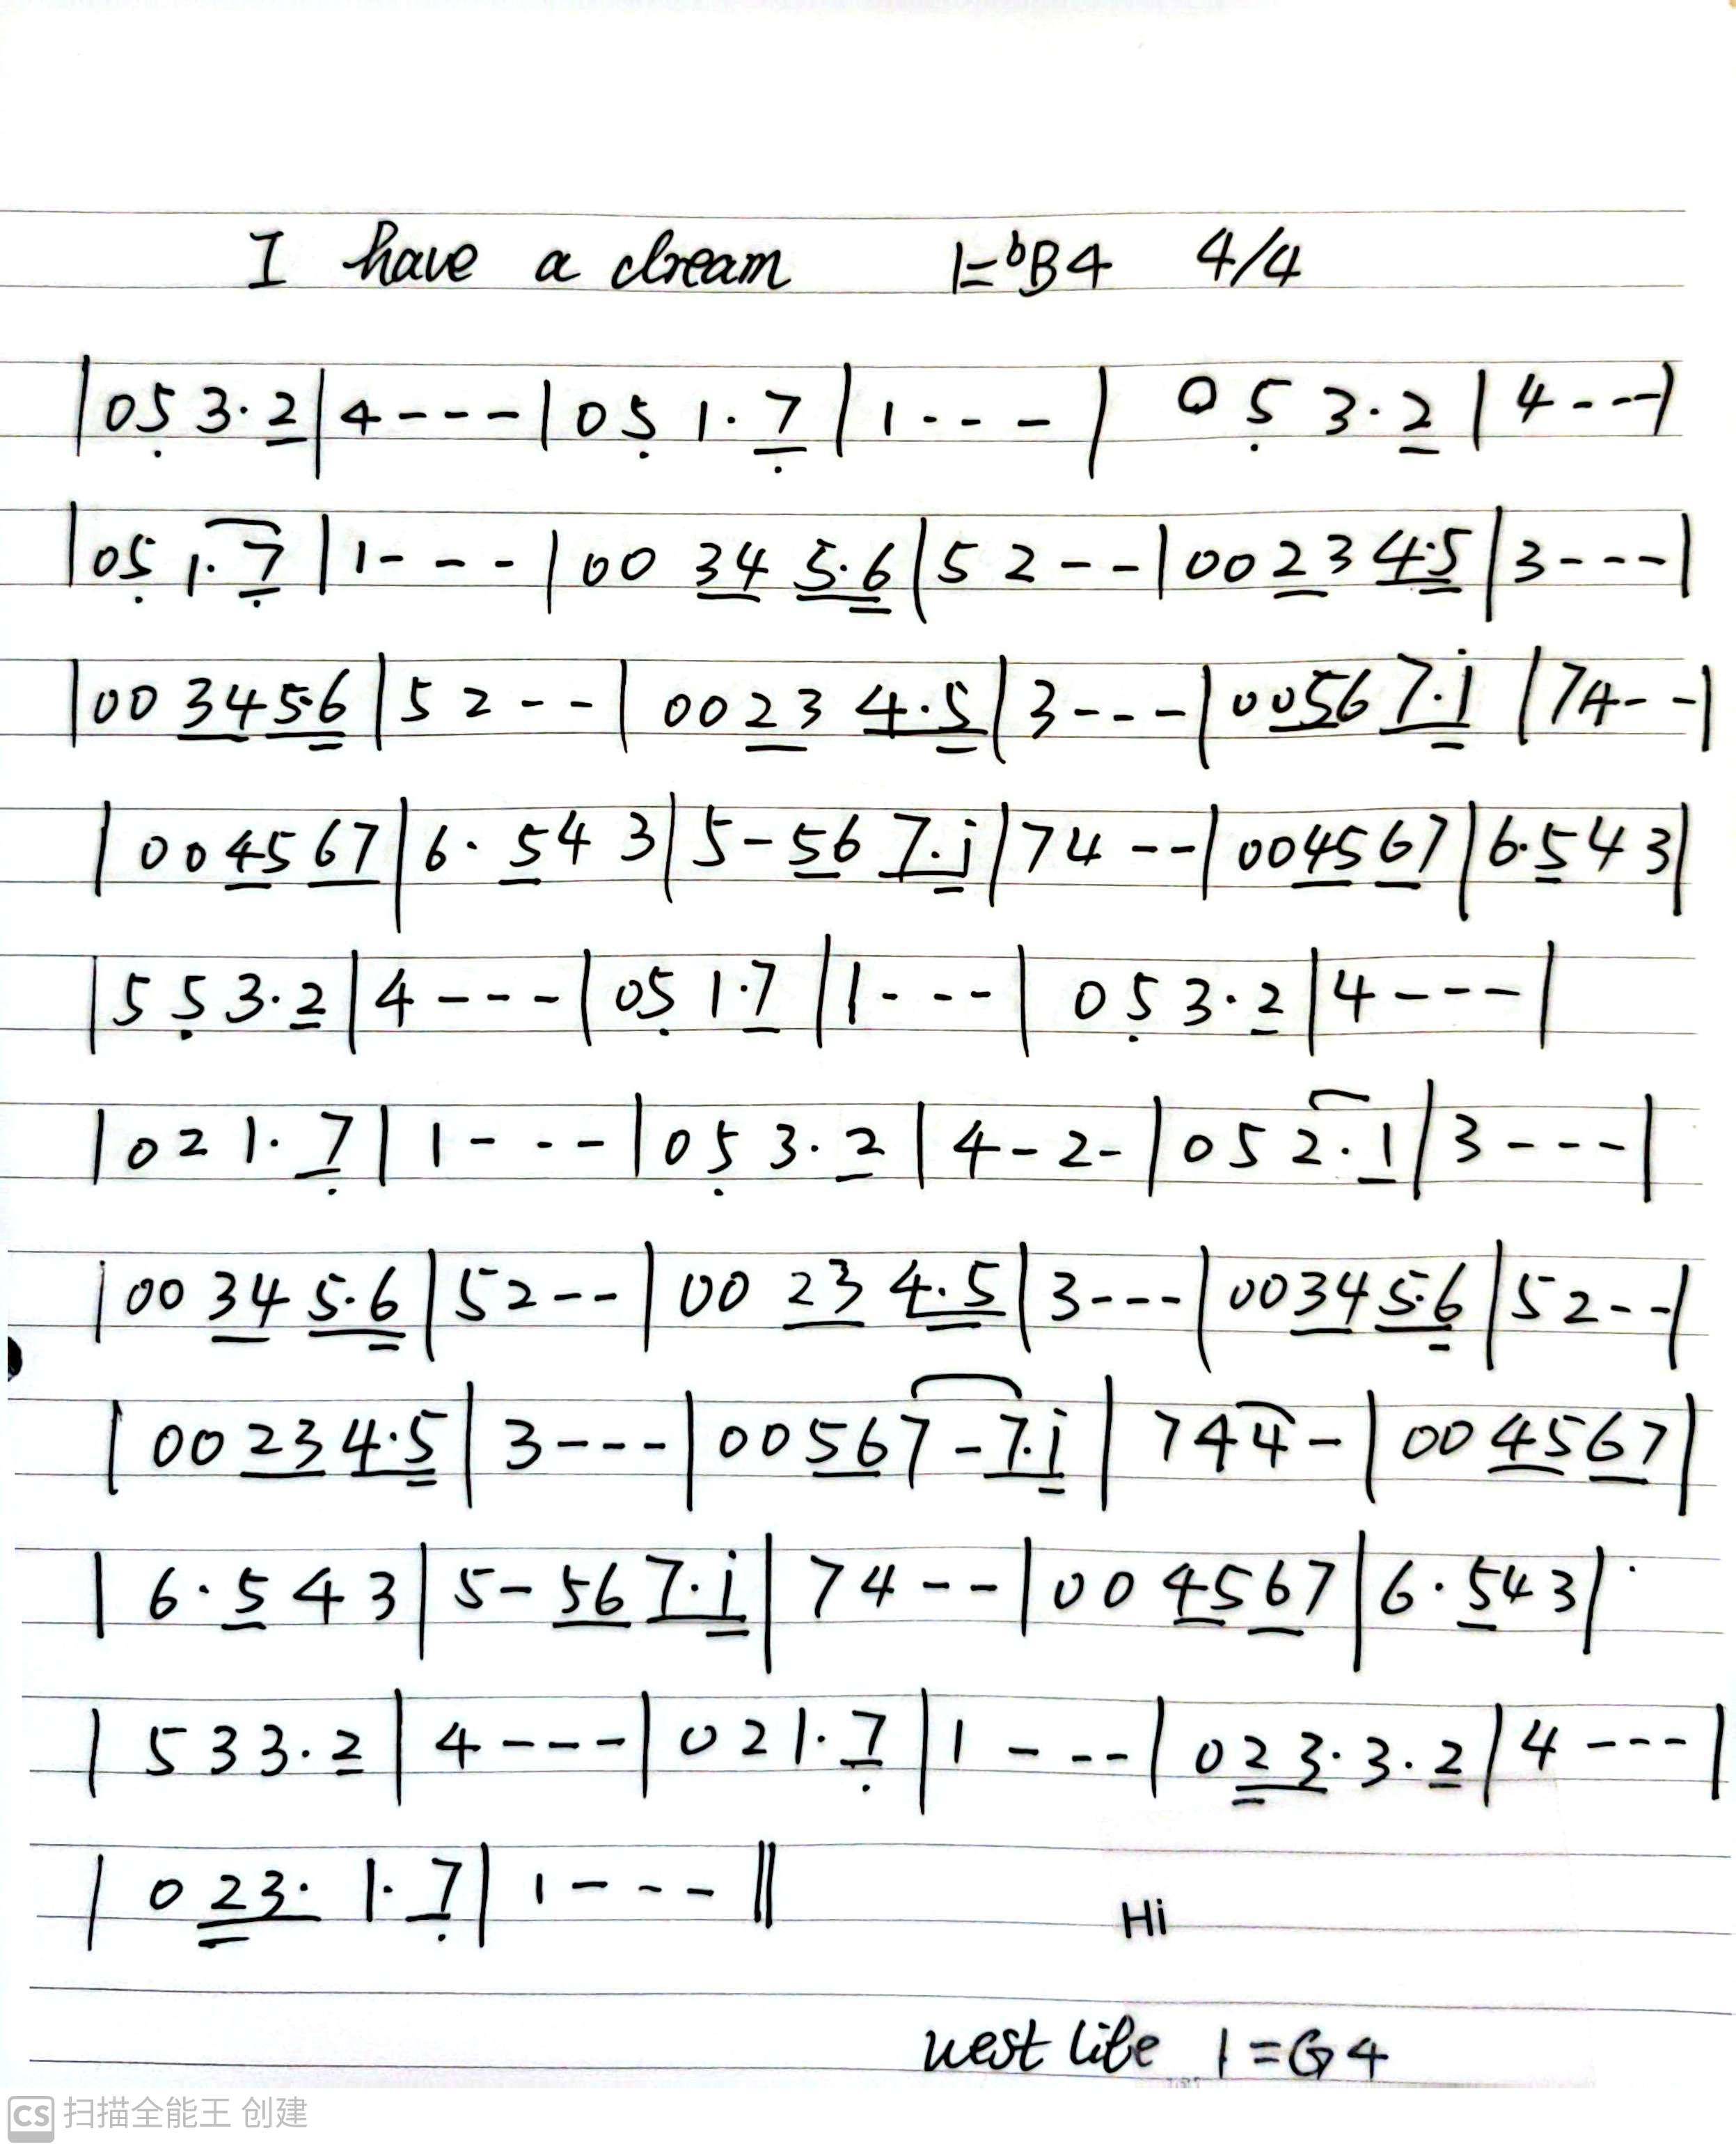 I have a dream 1=ᵇB4 4/4
|05̣ 3·2̲|4---|05̣ 1·7̲̣|1---| 05̣ 3·2̲|4---|
|05̣ 1·7̲̣|1---|00 3̲4̲ 5̲·6̳|52--|00 2̲3̲ 4̲·5̳|3---|
|00 3̲4̲ 5̲·6̳|52--|00 2̲3̲ 4̲·5̳|3---|00 5̲6̲ 7̲·i̳|74--|
|00 4̲5̲ 6̲7̲|6·5̲43|5-5̲6̲ 7̲·i̳|74--|00 4̲5̲ 6̲7̲|6·5̲43|
|55̣3·2̲|4---|05̣ 1·7̲|1---|05̣ 3·2̲|4---|
|021·7̲̣|1---|05̣ 3·2̲|4-2-|052·1̲|3---|
|00 3̲4̲ 5̲·6̳|52--|00 2̲3̲ 4̲·5̳|3---|00 3̲4̲ 5̲·6̳|52--|
|00 2̲3̲ 4̲·5̳|3---|00 5̲6̲ 7-7̲·i̳|744-|00 4̲5̲ 6̲7̲|
|6·5̲43|5-5̲6̲ 7̲·i̳|74--|00 4̲5̲ 6̲7̲|6·5̲43|
|533·2̲|4---|021·7̲̣|1---|0 2̳3̲·3·2̲|4---|
|0 2̳3̲· 1·7̲̣|1---‖
Hi
west life 1=G4
CS 扫描全能王 创建